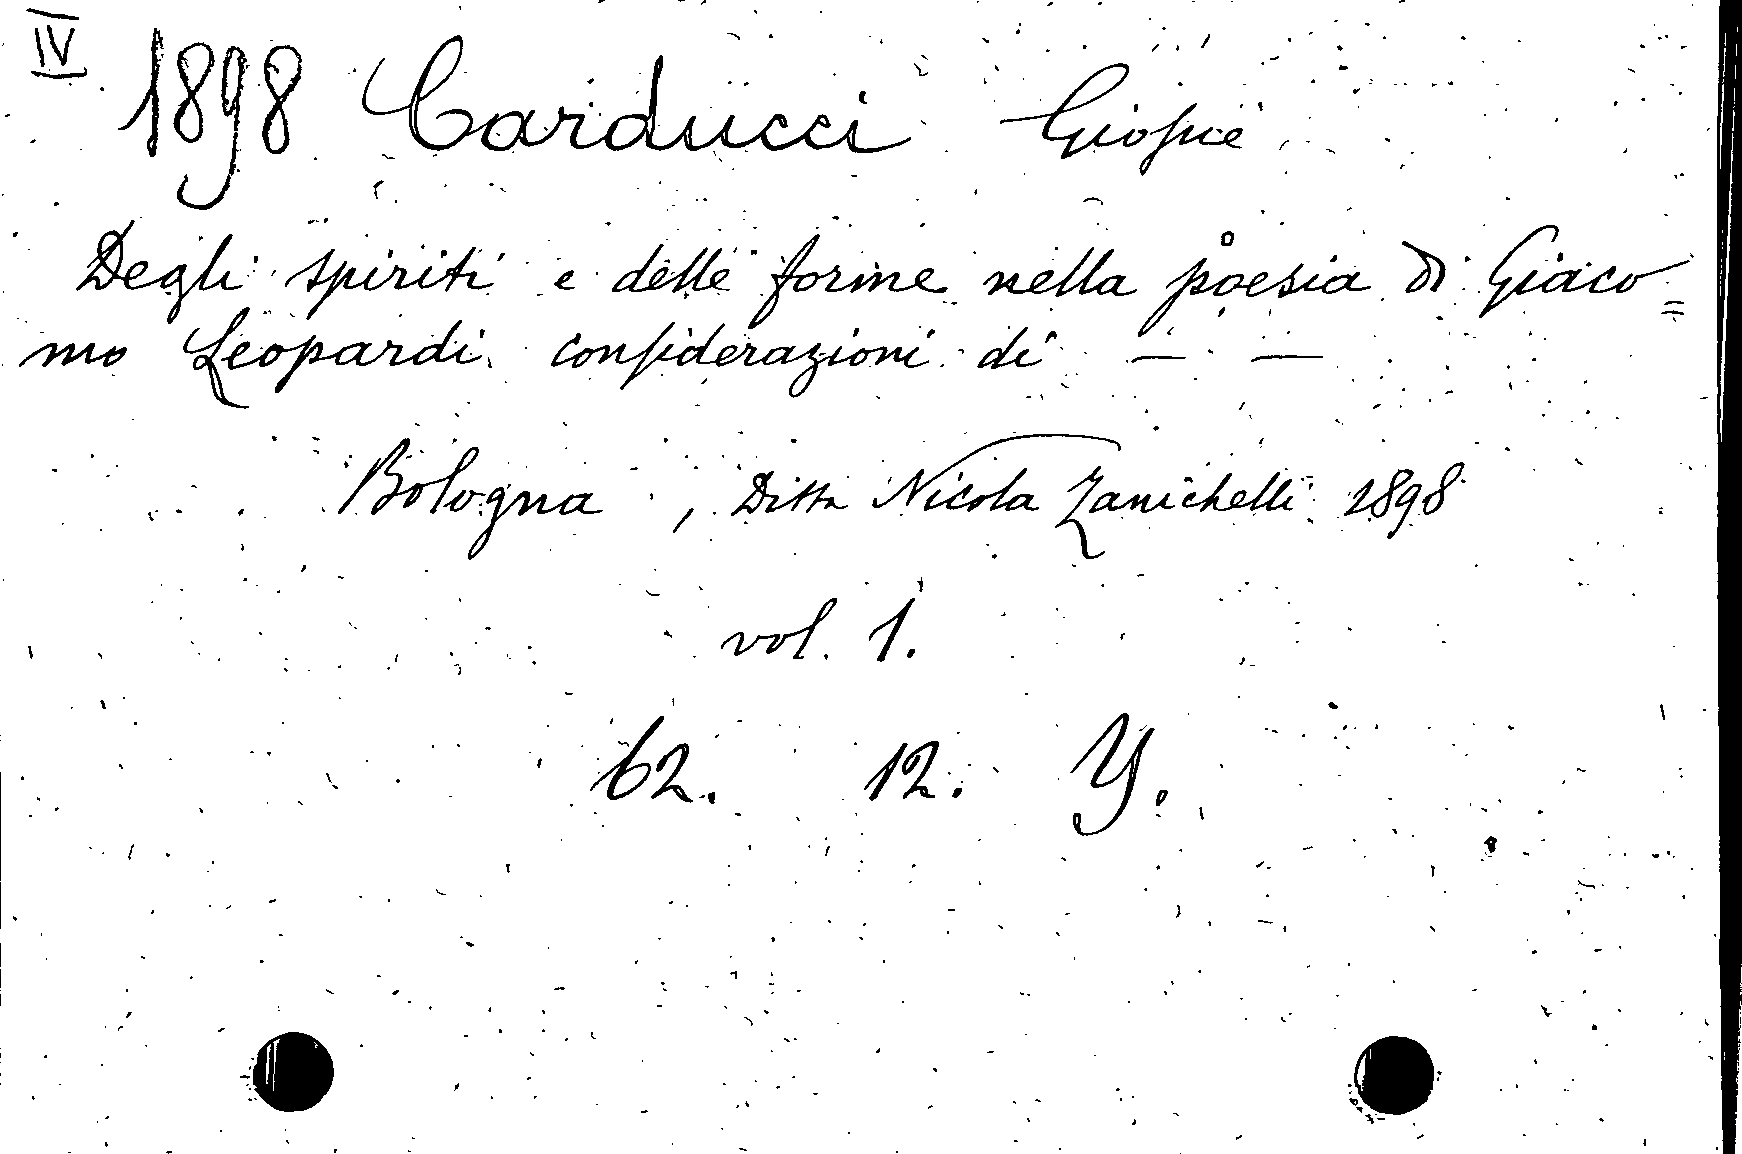 IV
1898 Carducci Giosue
Degli spiriti e delle forme nella poesia di Giaco=
mo Leopardi considerazioni di — —
Bologna, Ditta Nicola Zanichelli 1898
vol. 1.
62. 12. Y.